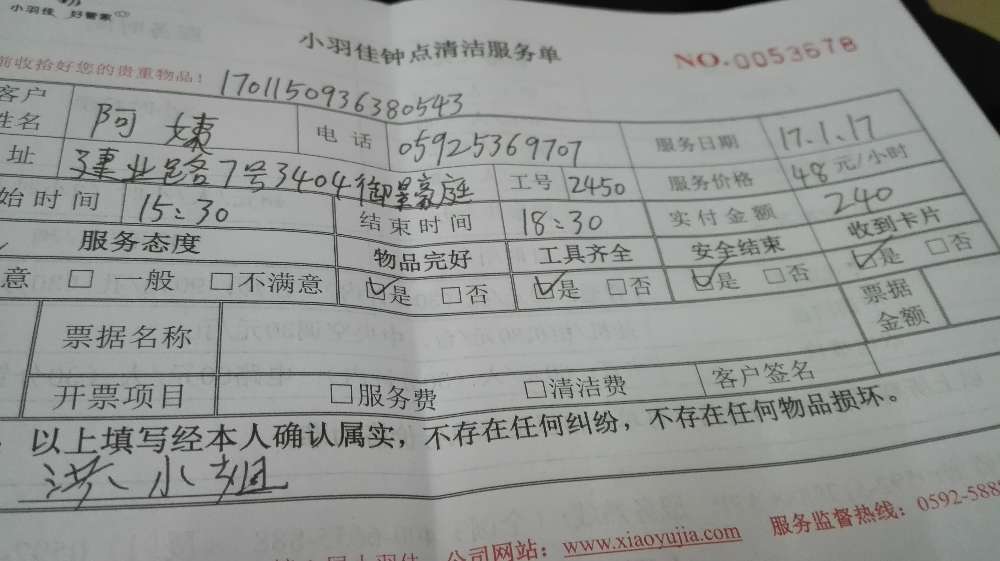 小羽佳 好管家
小羽佳钟点清洁服务单
NO.0053678
前收拾好您的贵重物品！ 1701150936380543
客户姓名 阿姨 电话 05925369707 服务日期 17.1.17
址 建业路7号3404御景豪庭 工号 2450 服务价格 48元/小时
始时间 15:30 结束时间 18:30 实付金额 240
服务态度 物品完好 工具齐全 安全结束 收到卡片
意 □一般 □不满意 ☑是 □否 ☑是 □否 ☑是 □否 ☑是 □否
票据名称 票据金额
开票项目 □服务费 □清洁费 客户签名
以上填写经本人确认属实，不存在任何纠纷，不存在任何物品损坏。
洪小姐
公司网站：www.xiaoyujia.com 服务监督热线：0592-588